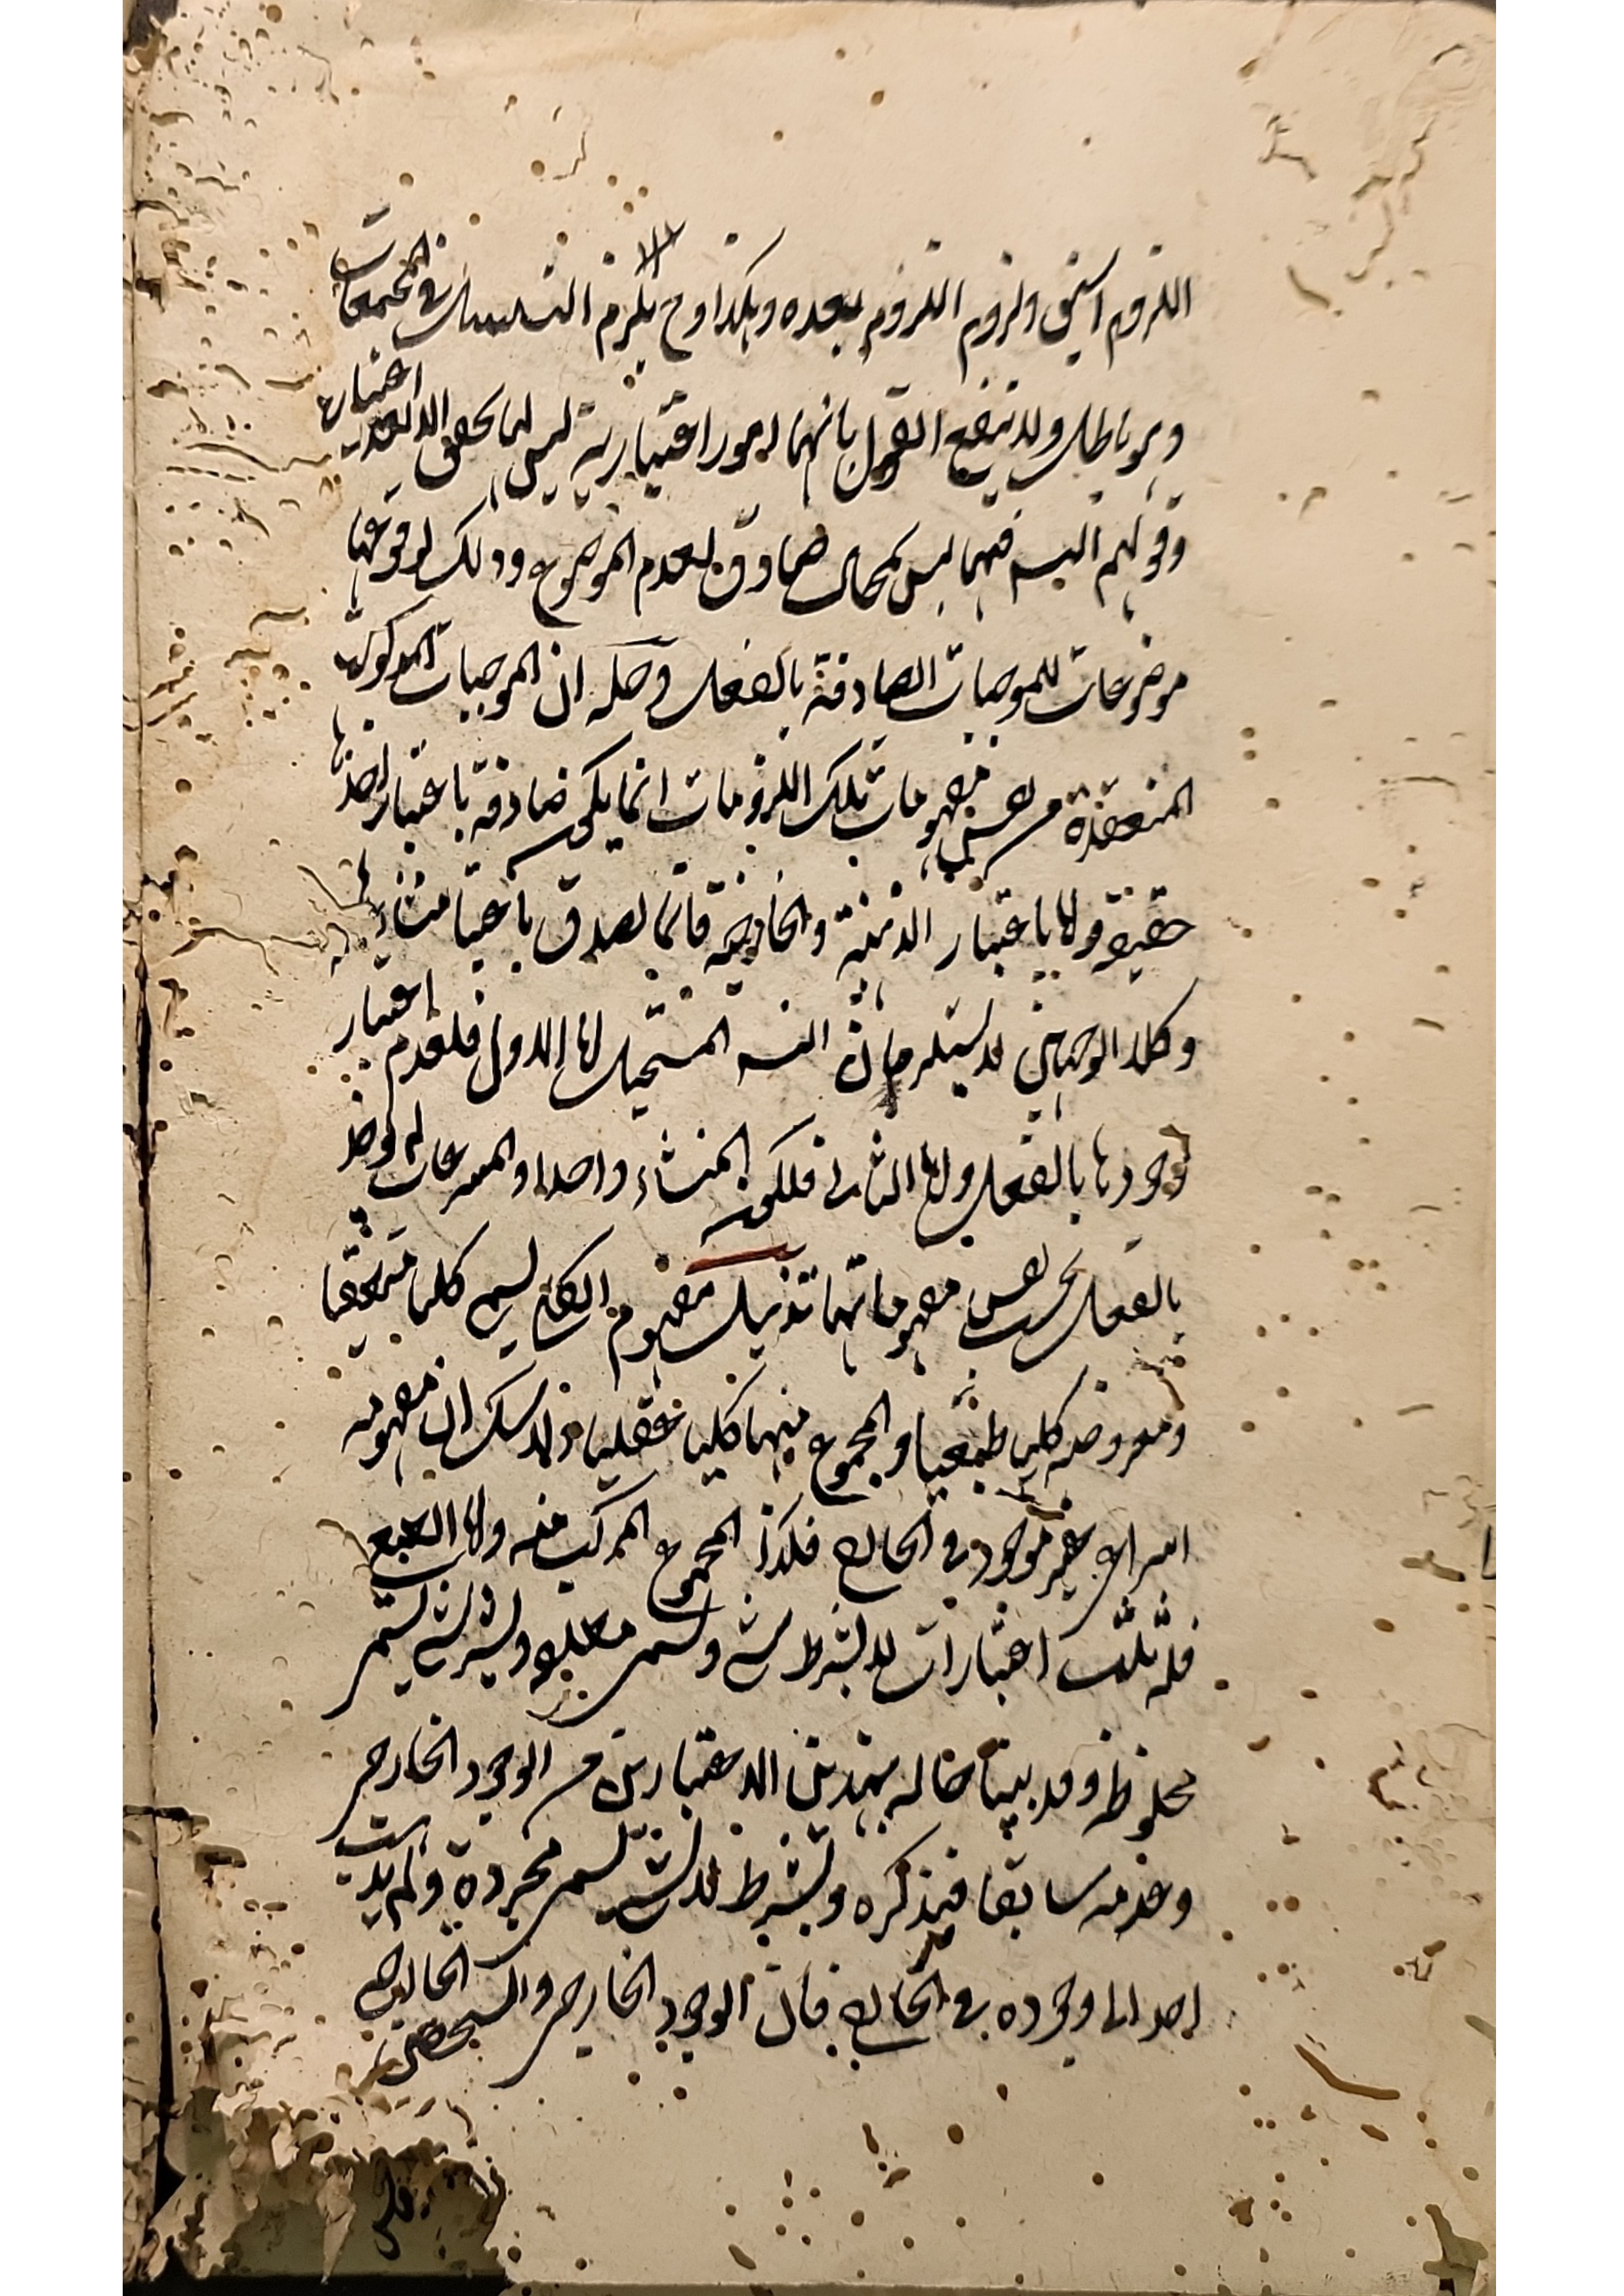 اللزوم اسبق ولزوم اللزوم بعده وهكذا وح يلزم التسلسل في المجتمعات
وهو باطل ولا ينفع القول بانهما امور اعتبارية ليس لها تحقق الا بعد اعتبار
وقولهم التسـ فيها ليس بمحال صادق لعدم الموضوع وذلك لوقوعها
موضوعات للموجبات الصادقة بالفعل وحله ان الموجبات المذكورة
المنعقدة من نفس مفهومات تلك اللزومات انما يكون صادقة باعتبار اخذها
حقيقية ولا باعتبار الذهنية والخارجية فانما تصدق باعتبار منشاء
وكلا الوجهين لا يستلزمان التسـ المستحيل اما الاول فلعدم اعتبار
وجودها بالفعل واما الثاني فلكون المنشاء واحدا والمنتزعات لم توخذ
بالفعل بحسب نفس مفهوماتها تذييل مفهوم الكلي يسمى كليا منطقيا
ومعروضه كليا طبعيا والمجموع منهما كليا عقليا ولا شك ان مفهومه
امر اعـ غير موجود في الخارج فكذا المجموع المركب منه واما الطبعي
فله ثلث اعتبارات لا بشرط شئ وتسمى مطلقه وبشرط شئ يسمى
مخلوطة وقد بينا حاله بهذين الاعتبارين من الوجود الخارجي
وعدمه سابقا فتذكره وبشرط لا شئ تسمى مجردة ولم يذهب
احد الى وجوده في الخارج فان الوجود الخارجي والتشخص الخارجي